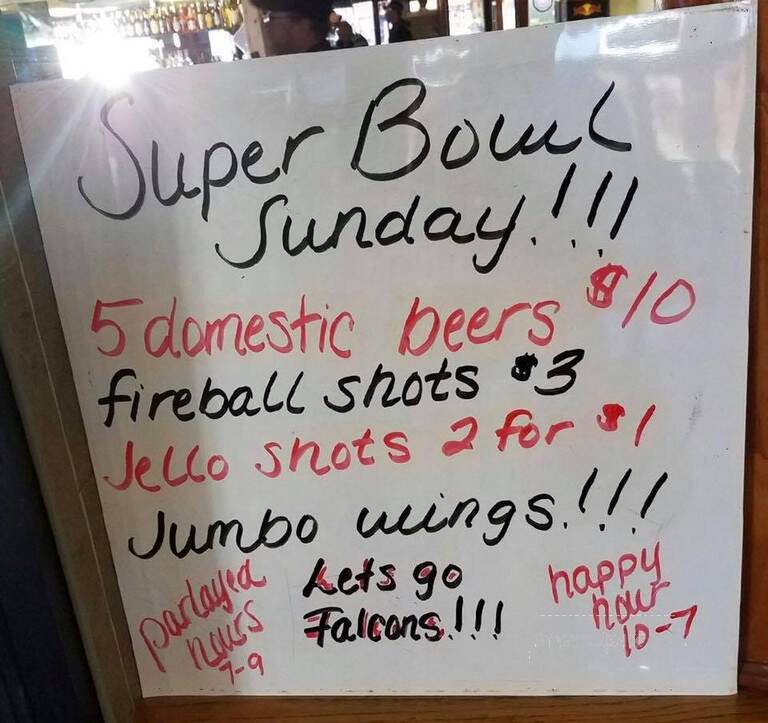 Super Bowl
Sunday!!!
5 domestic beers $10
fireball shots $3
Jello shots 2 for $1
Jumbo wings!!!
Lets go
Falcons!!!
parlayed
hours
7-9
happy
hour
10-7